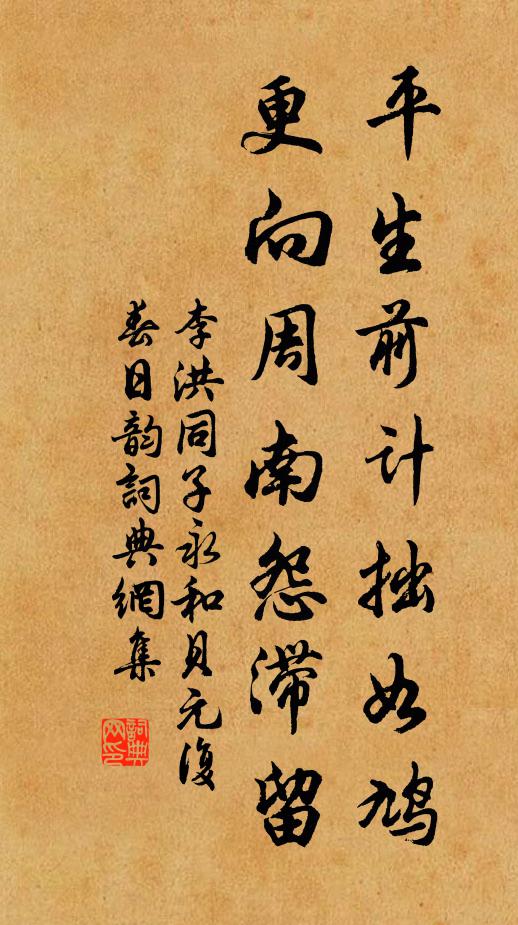 平生前计拙如鸠
更向周南怨滞留
李洪同子永和貝元復
春日韵詞典網集
詞典
网印